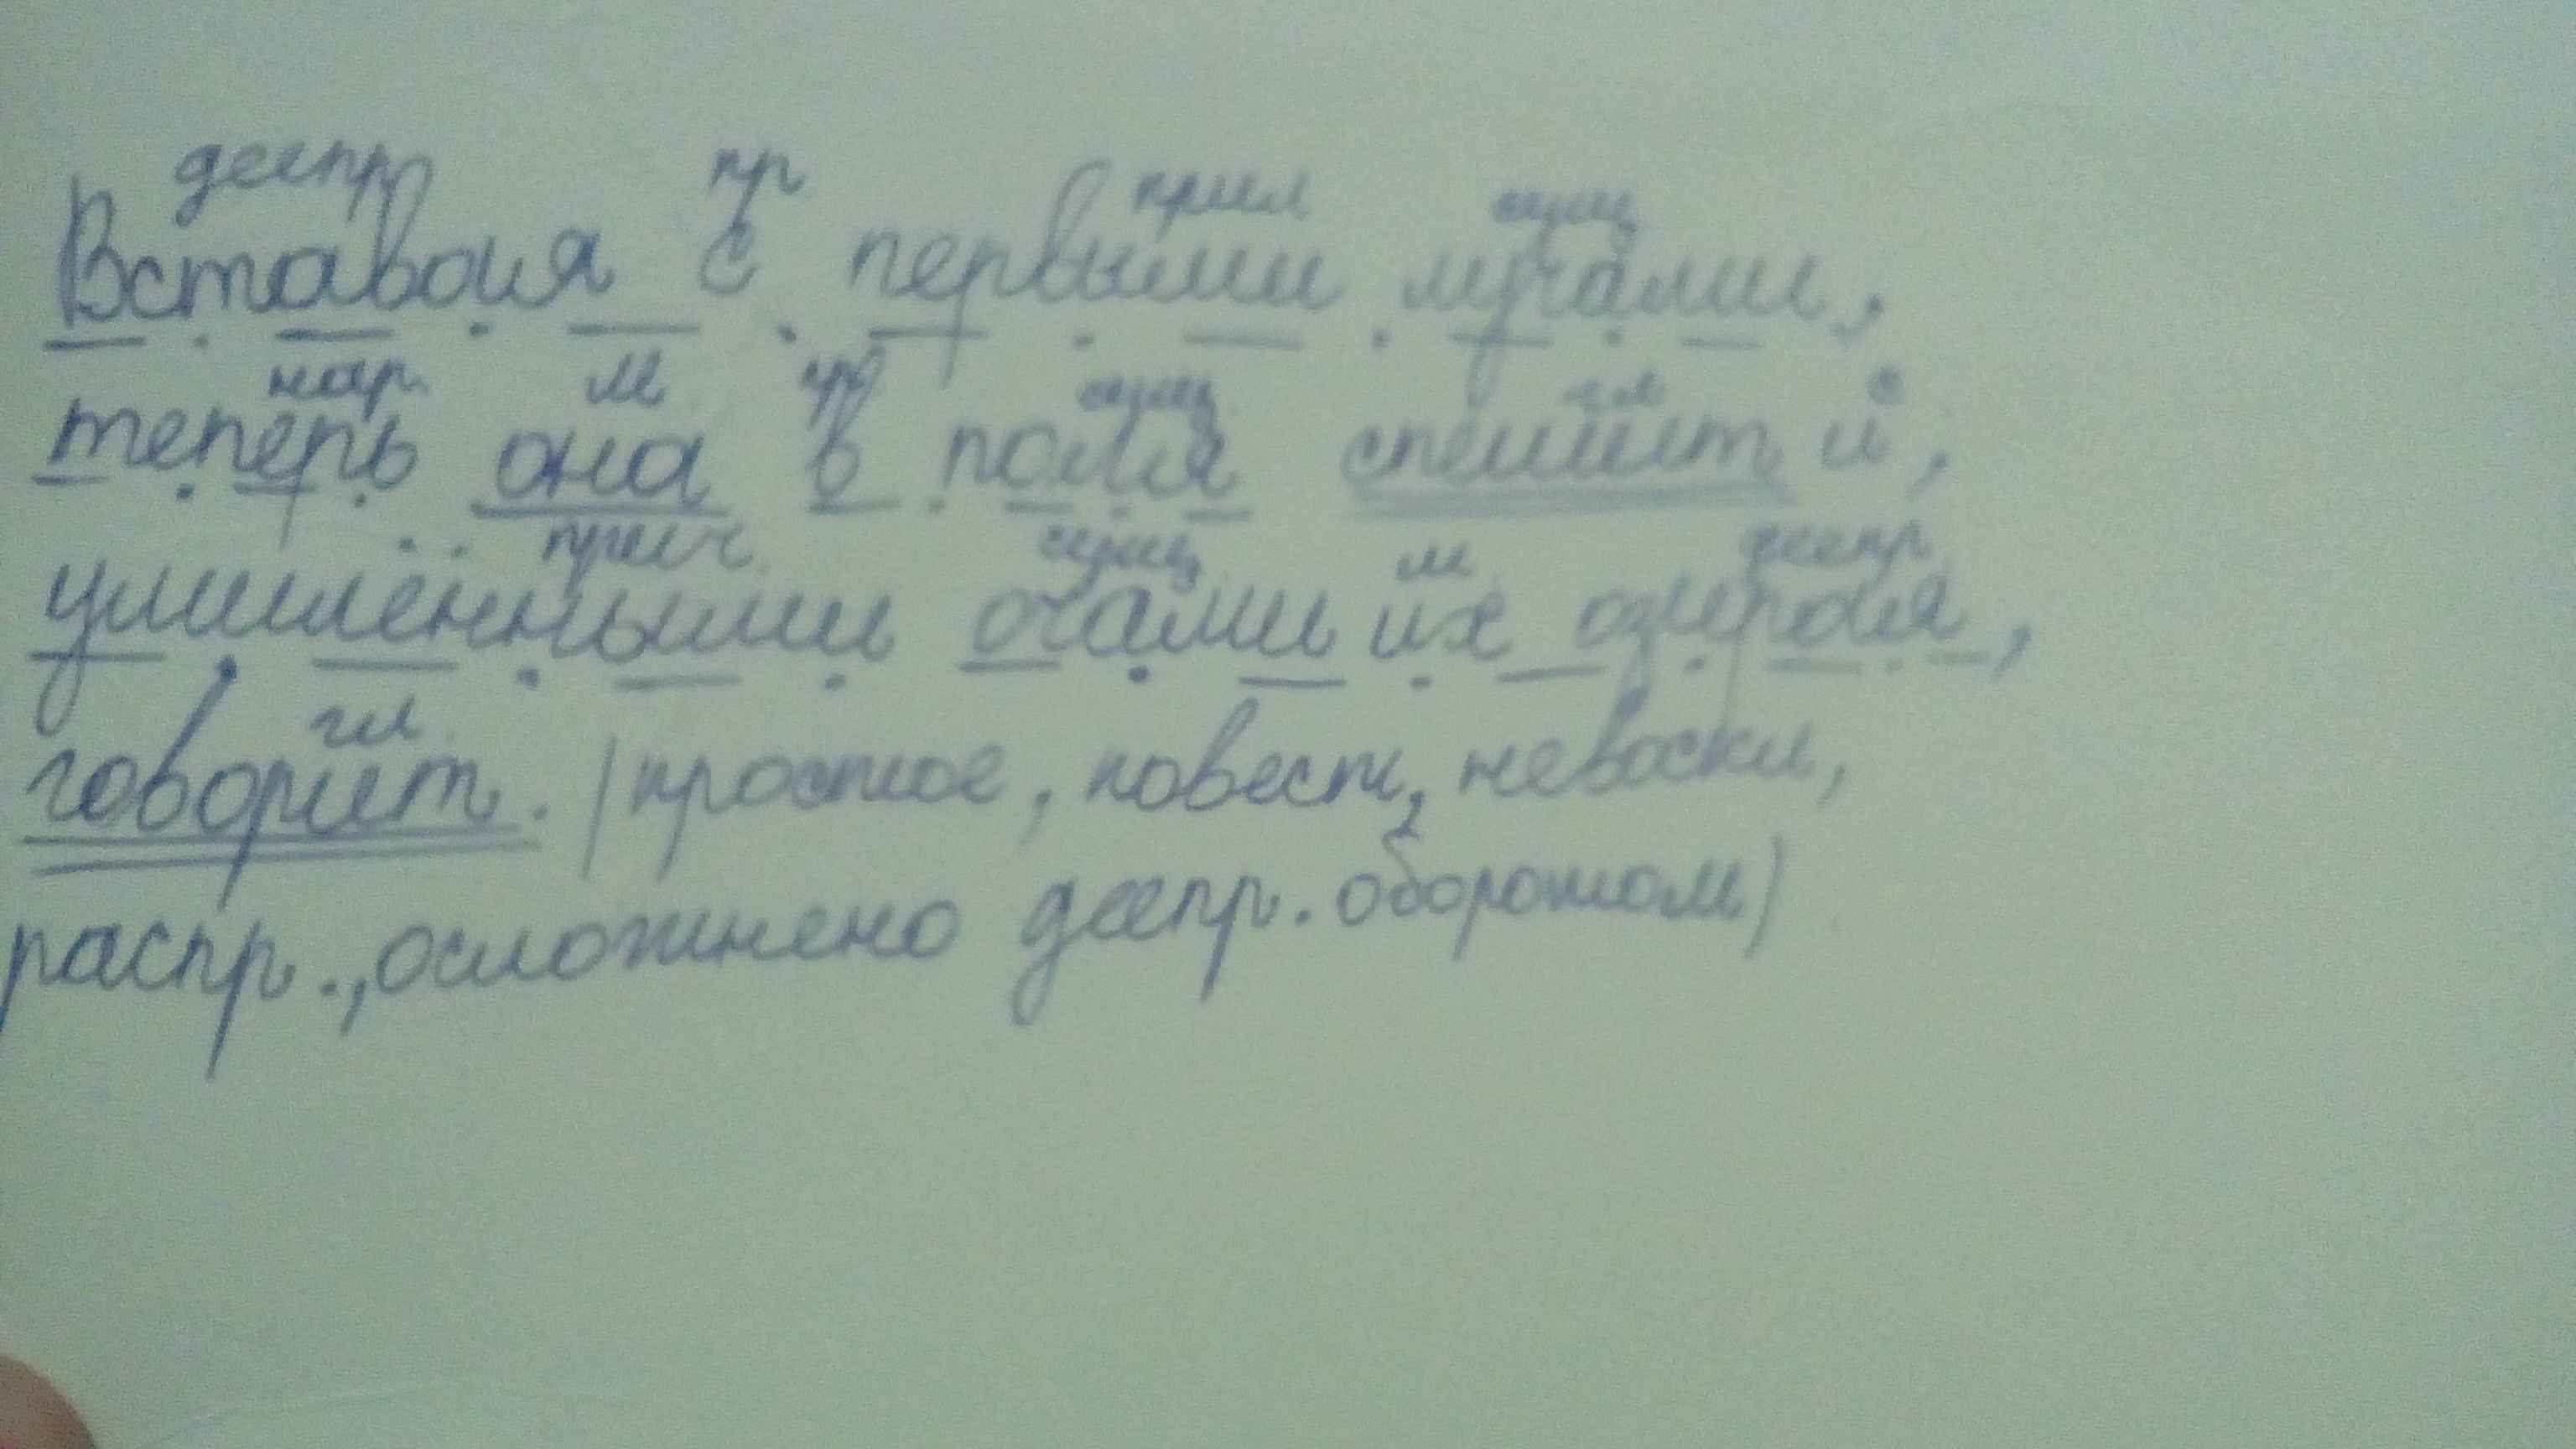 деепр пр прил сущ
Вставая с первыми лучами,
нар. м. пр. сущ. гл с
теперь она в поля спешит и,
прич. сущ. м. деепр.
умилёнными очами их озирая,
гл.
говорит. (простое, повест, невоскл,
распр., осложнено деепр. оборотом)